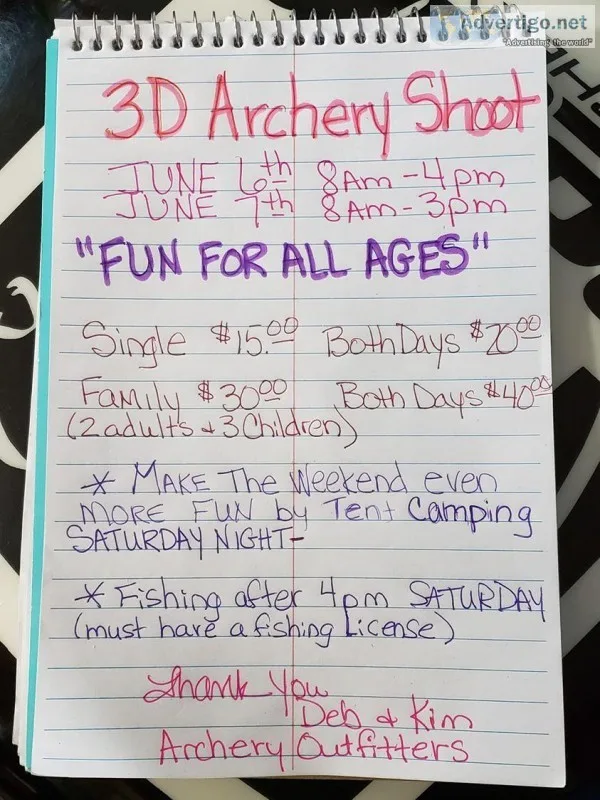 Advertigo.net
"Advertising the world"
3D Archery Shoot
JUNE 6th 8AM-4pm
JUNE 7th 8AM-3pm
"FUN FOR ALL AGES"
Single $15.00 Both Days $20.00
Family $3000 Both Days $40.00
(2 adults & 3 Children)
* MAKE The Weekend even
MORE FUN by Tent Camping
SATURDAY NIGHT-
* Fishing after 4pm SATURDAY
(must have a fishing License)
Thank You
Deb & Kim
Archery Outfitters